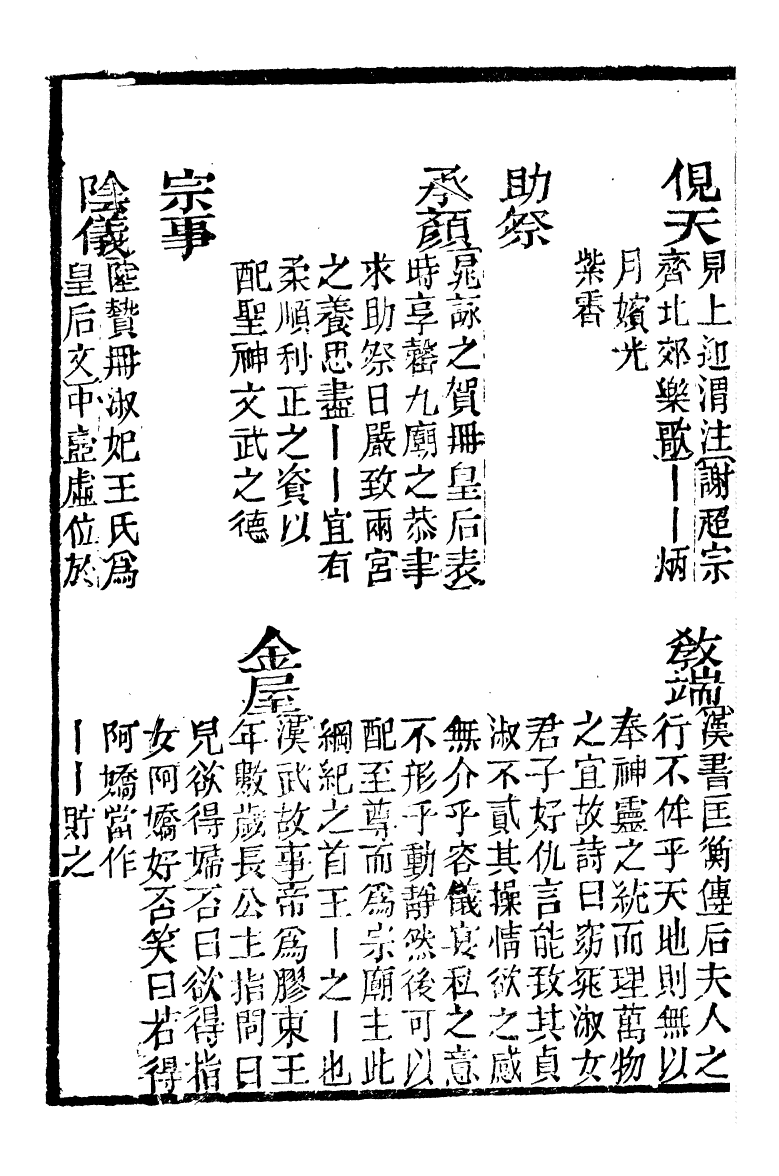 俔天
見上迎渭注謝超宗
齊北郊樂歌丨丨炳
月嬪光
紫霄
助祭
承顏
晁詠之賀冊皇后表
時享罄九廟之恭聿
求助祭日嚴致兩宮
之養思盡丨丨宜有
柔順利正之資以
配聖神文武之德
宗事
陰儀
陸贄冊淑妃王氏爲
皇后文中壼虛位於
敎端
漢書匡衡傳后夫人之
行不侔乎天地則無以
奉神靈之統而理萬物
之宜故詩曰窈窕淑女
君子好仇言能致其貞
淑不貳其操情欲之感
無介乎容儀宴私之意
不形乎動靜然後可以
配至尊而爲宗廟主此
綱紀之首王丨之丨也
金屋
漢武故事帝爲膠東王
年數歲長公主指問曰
兒欲得婦否曰欲得指
女阿嬌好否笑曰若得
阿嬌當作
丨丨貯之